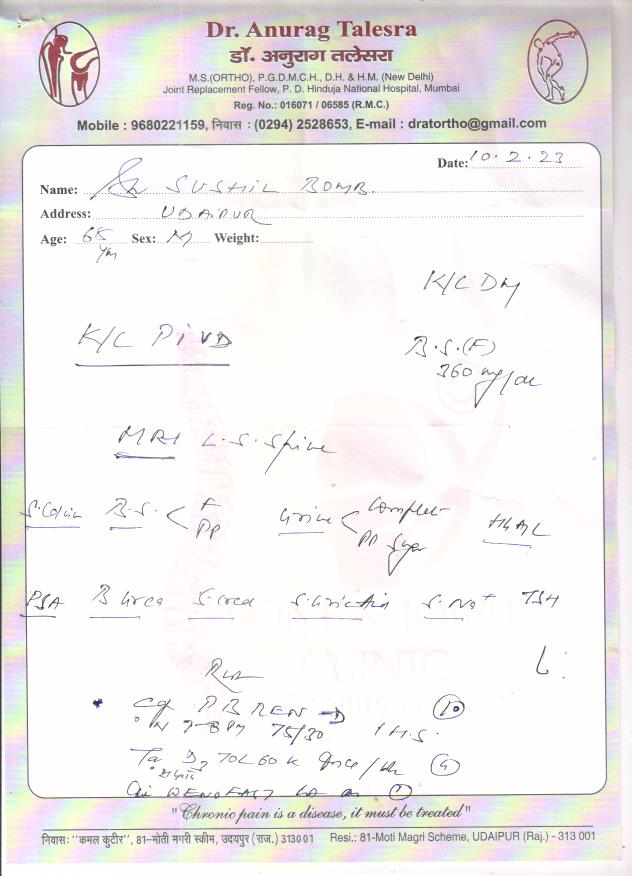 Dr. Anurag Talesra
डॉ. अनुराग तलेसरा
M.S.(ORTHO), P.G.D.M.C.H., D.H. & H.M. (New Delhi)
Joint Replacement Fellow, P. D. Hinduja National Hospital, Mumbai
Reg. No.: 016071 / 06585 (R.M.C.)
Mobile : 9680221159, निवास : (0294) 2528653, E-mail : dratortho@gmail.com
Date: 10.2.23
Name: SUSHIL BOMB.
Address: UDAIPUR
Age: 65 Yrs Sex: M Weight:
K/C DM
K/C PIVD
B.S.(F)
360 mg/dl
MRI L.S. Spine
B.S. < F PP Urine < Complete PP Sugar
PSA B Urea S. Creat S. Uric Acid S. Na+ TSH
75/30 1 H.S.
D3 60K
"Chronic pain is a disease, it must be treated"
निवास: "कमल कुटीर", 81-मोती मगरी स्कीम, उदयपुर (राज.) 313001 Resi.: 81-Moti Magri Scheme, UDAIPUR (Raj.) - 313 001